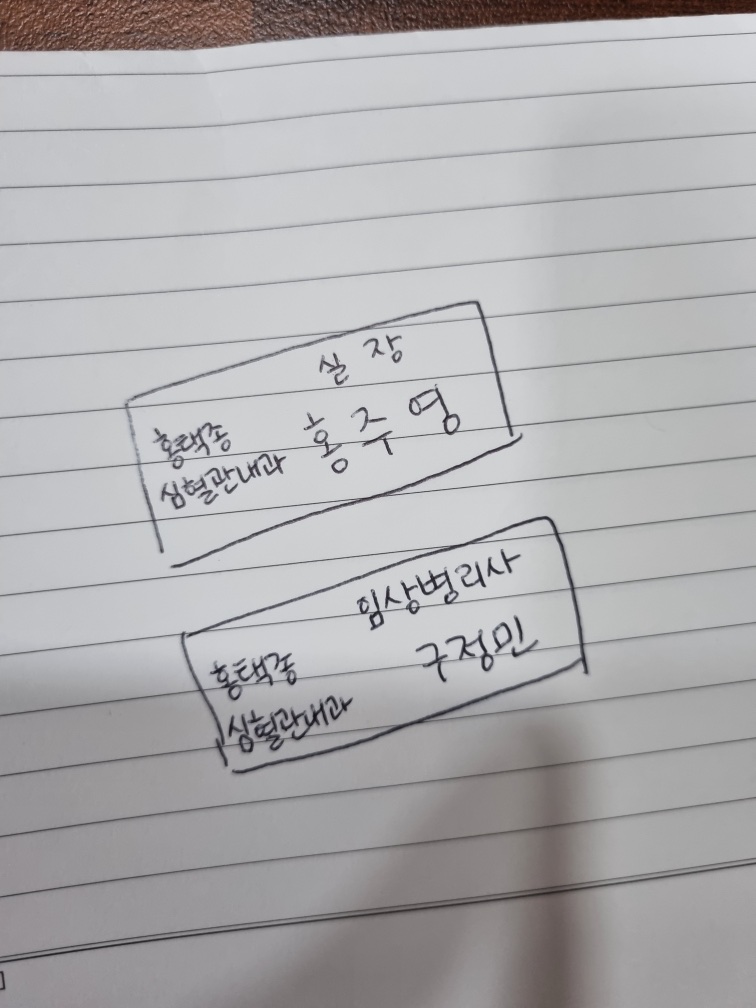 실장
홍택종 홍주영
심혈관내과
임상병리사
홍택종 구정민
심혈관내과